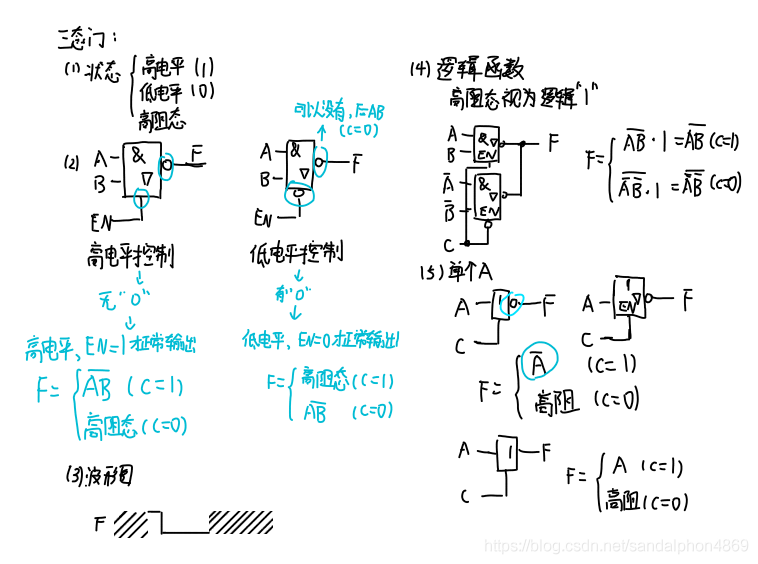 三态门：
(1) 状态 { 高电平 (1)
低电平 (0)
高阻态
(2) A B & ▽ F EN
高电平控制
无"0"
高电平、EN=1才正常输出
F = { A̅B̅ (C=1)
高阻态 (C=0)
可以没有，F=AB
(C=0)
A B & ▽ F̅ EN
低电平控制
有"0"
低电平、EN=0才正常输出
F = { 高阻态 (C=1)
A̅B̅ (C=0)
(3) 波形图
F
(4) 逻辑函数
高阻态视为逻辑"1"
A B & ▽ EN F
A̅ B̅ & ▽ EN
C
F = { A̅B̅ · 1 = A̅B̅ (C=1)
A̅B̅ · 1 = A̅B̅ (C=0)
(5) 单个A
A 1 F C
A 1 ▽ EN F̅ C
F = { A̅ (C=1)
高阻 (C=0)
A 1 F C
F = { A (C=1)
高阻 (C=0)
https://blog.csdn.net/sandalphon4869